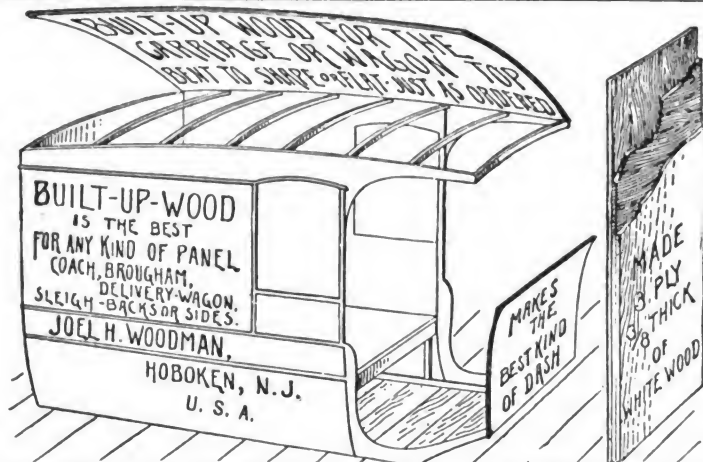 BUILT-UP WOOD FOR THE
CARRIAGE OR WAGON TOP
BENT TO SHAPE OR FLAT-JUST AS ORDERED
BUILT-UP-WOOD
IS THE BEST
FOR ANY KIND OF PANEL
COACH, BROUGHAM,
DELIVERY-WAGON,
SLEIGH-BACKS OR SIDES.
JOEL H. WOODMAN,
HOBOKEN, N.J.
U. S. A.
MAKES
THE
BEST KIND
OF DASH
MADE
3 PLY
3/8 THICK
OF
WHITE WOOD